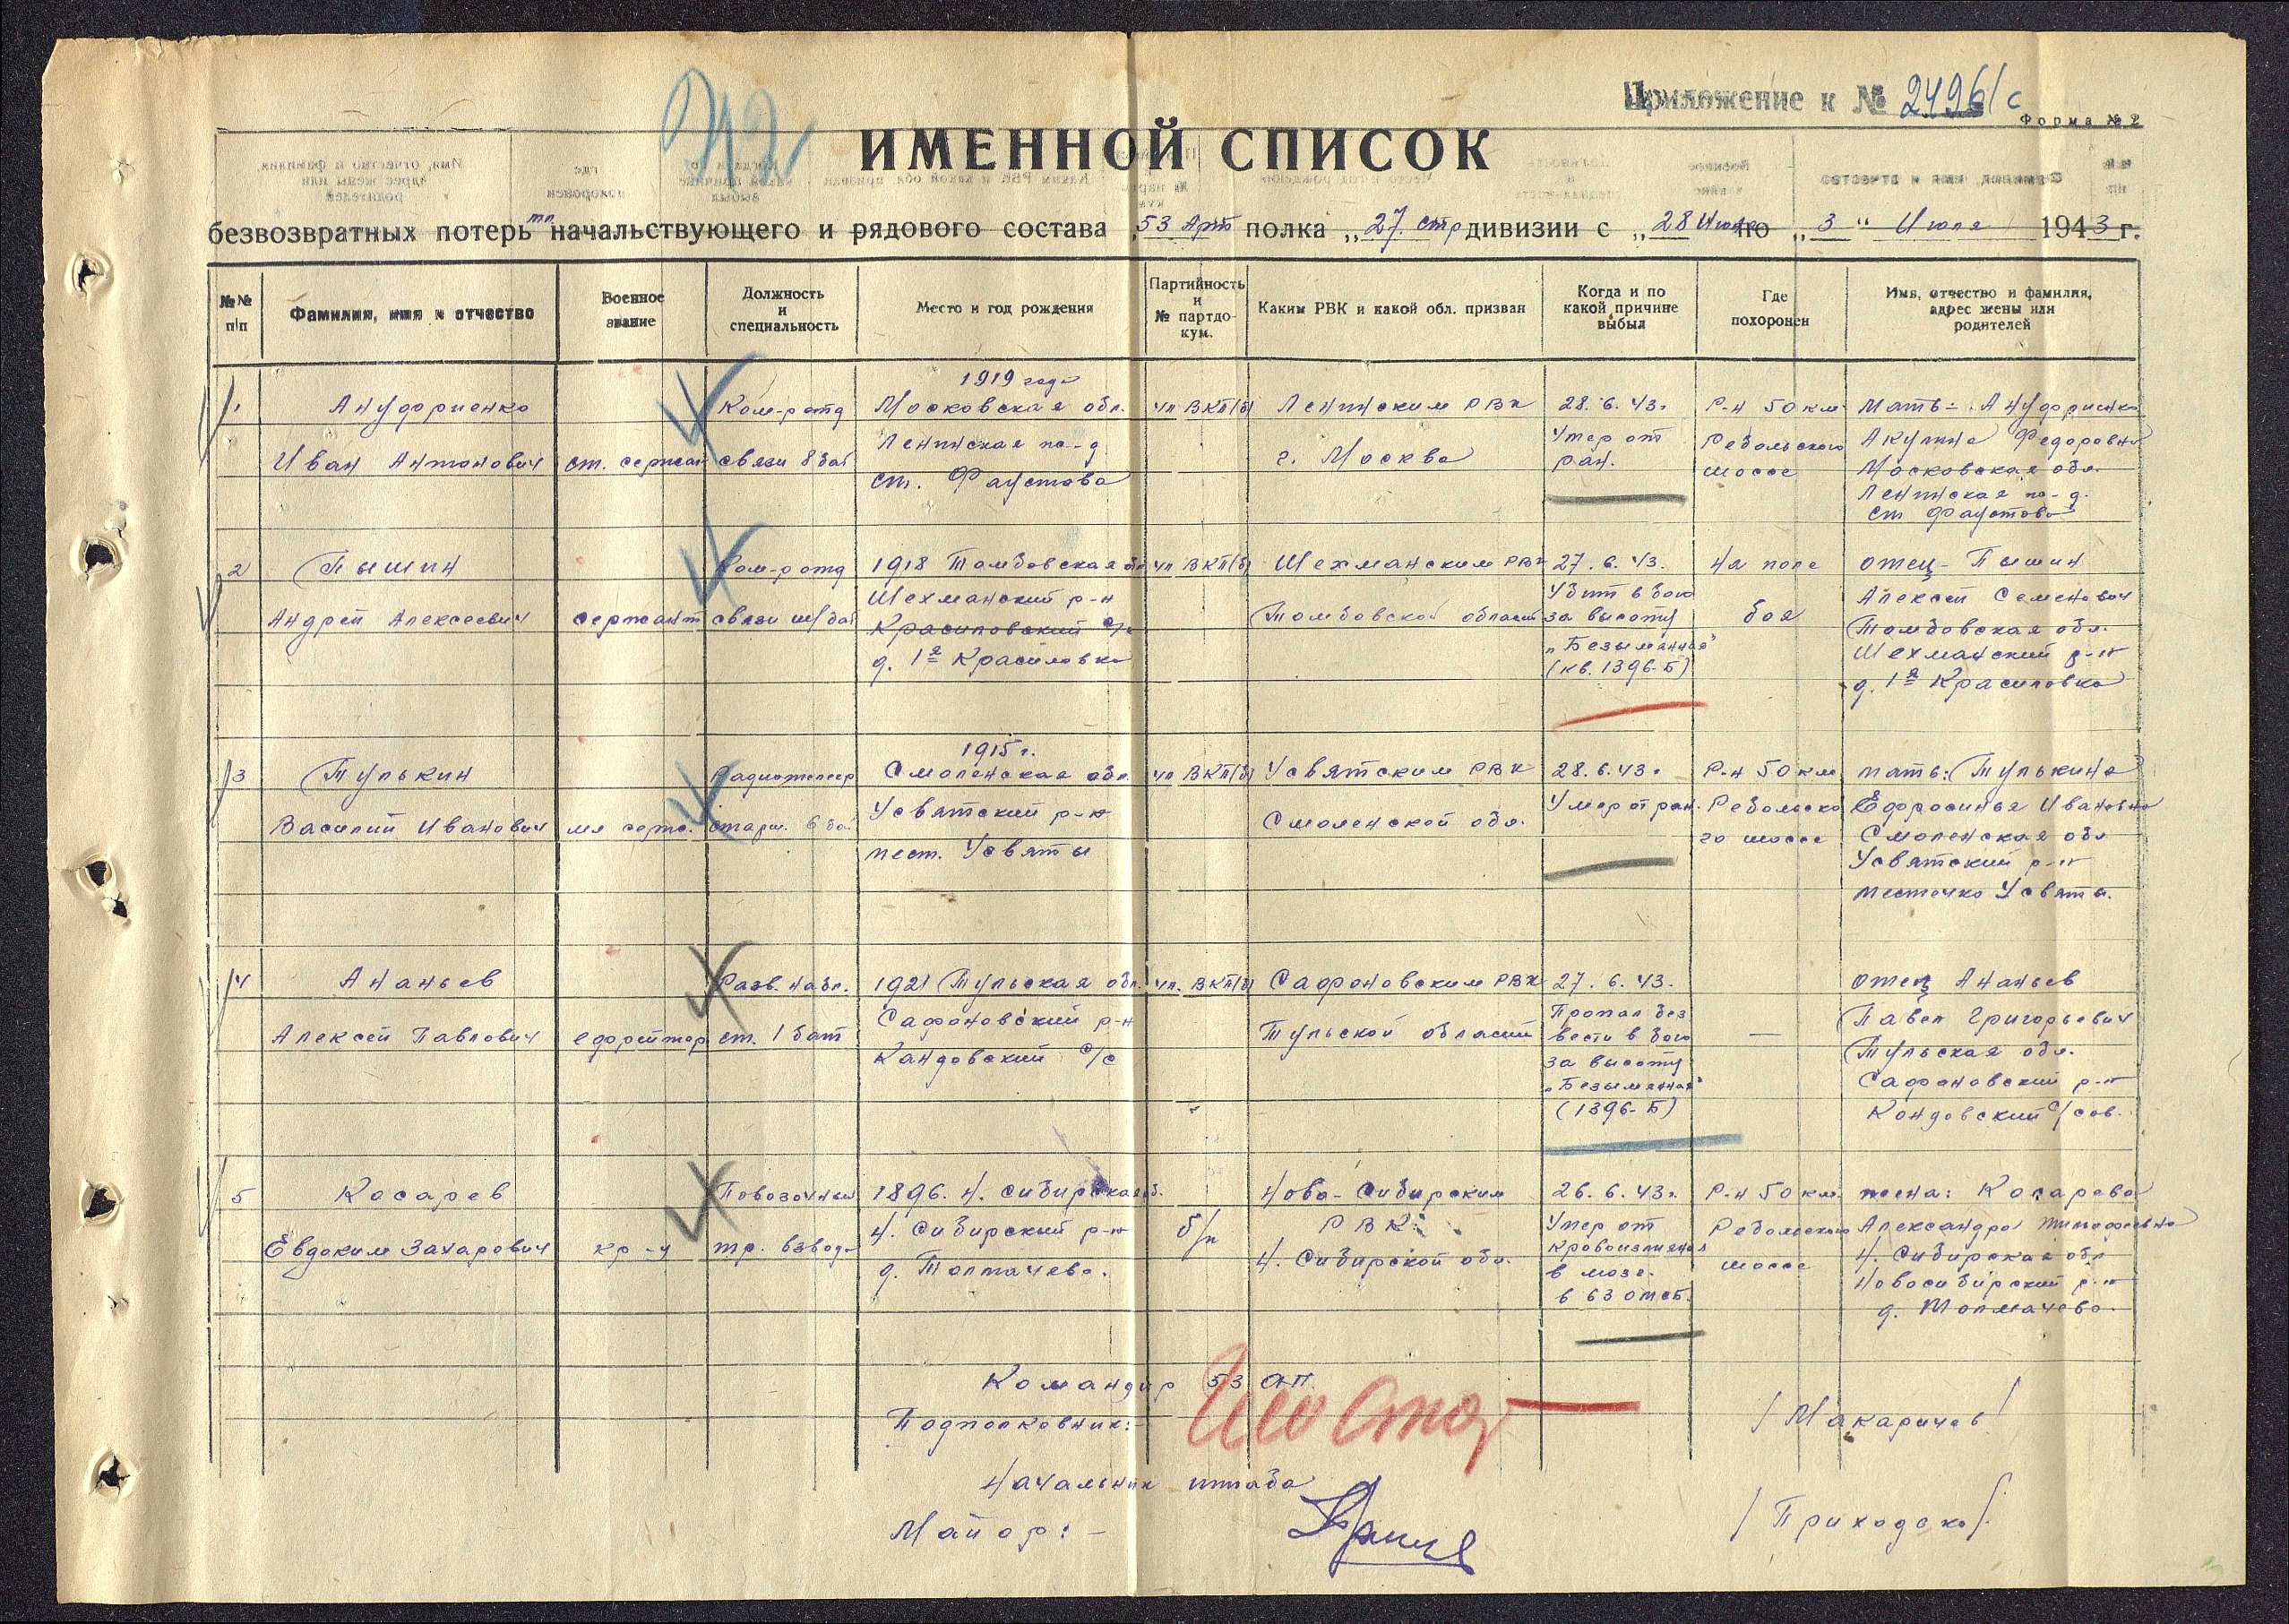 Приложение к № 2496/с
Форма № 2
ИМЕННОЙ СПИСОК
безвозвратных потерь мл. начальствующего и рядового состава 53 Арт полка „27. стр дивизии с „28 Июня по „3“ Июля 1943 г.
№№ п/п
Фамилия, имя и отчество
Военное звание
Должность и специальность
Место и год рождения
Партийность и № партдокум.
Каким РВК и какой обл. призван
Когда и по какой причине выбыл
Где похоронен
Имя, отчество и фамилия, адрес жены или родителей
1
Ануфриенко
Иван Антонович
ст. сержан
Ком-р отд
связи 8 бат
1919 года
Московская обл.
Ленинская по-д
ст. Фаустова
чл ВКП/б/
Ленинским РВК
г. Москва
28.6.43г
Умер от
ран.
Р-н 50 км
Ребольского
шоссе
Мать - Ануфриенко
Акулина Федоровна
Московская обл.
Ленинская по-д.
ст Фаустово
2
Пышин
Андрей Алексеевич
сержант
Ком-р отд
связи шт/бат
1918 Тамбовская обл
Шехманский р-н
Красиловский с/с
д. 1я Красиловка
чл ВКП/б/
Шехманским РВК
Тамбовской области
27.6.43.
Убит в бою
за высоту
„Безымянная“
(кв. 1396-Б)
На поле
боя
отец - Пышин
Алексей Семенович
Тамбовская обл.
Шехманский р-н
д. 1я Красиловка
3
Тулькин
Василий Иванович
мл серж.
Радиотелегр
старш. 6 бат
1915 г.
Смоленская обл.
Усвятский р-н
мест. Усвяты
чл ВКП/б/
Усвятским РВК
Смоленской обл.
28.6.43г
Умер от ран.
Р-н 50 км
Ребольско
го шоссе
мать: Тулькина
Ефросинья Ивановна
Смоленская обл
Усвятский р-н
местечко Усвяты.
4
Ананьев
Алексей Павлович
ефрейтор
Разв. набл.
ст. 1 бат
1921 Тульская обл.
Сафоновский р-н
Кандовский с/с
чл. ВКП/б/
Сафоновским РВК
Тульской области
27.6.43.
Пропал без
вести в бою
за высоту
„Безымянная“
(1396-Б)
—
отец Ананьев
Павел Григорьевич
Тульская обл.
Сафоновский р-н
Кондовский с/сов.
5
Косарев
Евдоким Захарович
кр-ц
Повозочный
тр. взвода
1896. Н. Сибирская об.
Н. Сибирский р-н
д. Толмачево.
б/п
Ново-Сибирским
РВК.
Н. Сибирской обл.
26.6.43г.
Умер от
кровоизлияния
в мозг.
в 63 омсб.
Р-н 50 км.
Ребольского
шоссе
жена: Косарева
Александра Тимофеевна
Н. Сибирская обл
Новосибирский р-н
д. Толмачево
Командир 53 АП
Подполковник:-
/Макаричев/
Начальник штаба
Майор:-
/Приходско/